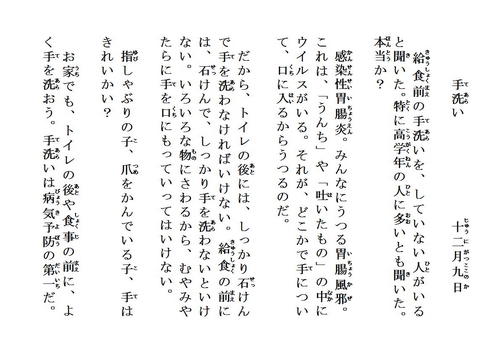 手洗い　　　十二月九日
給食前の手洗いを、していない人がいる
と聞いた。特に高学年の人に多いとも聞いた。
本当か？
感染性胃腸炎。みんなにうつる胃腸風邪。
これは、「うんち」や「吐いたもの」の中に
ウイルスがいる。それが、どこかで手につい
て、口に入いるからうつるのだ。
だから、トイレの後には、しっかり石けん
で手を洗わなければいけない。給食の前に
は、石けんで、しっかり手を洗わないといけ
ない。いろいろな物にさわるから、むやみや
たらに手を口にもっていってはいけない。
指しゃぶりの子、爪をかんでいる子、手は
きれいかい？
お家でも、トイレの後や食事の前に、よ
く手を洗おう。手洗いは病気予防の第一だ。